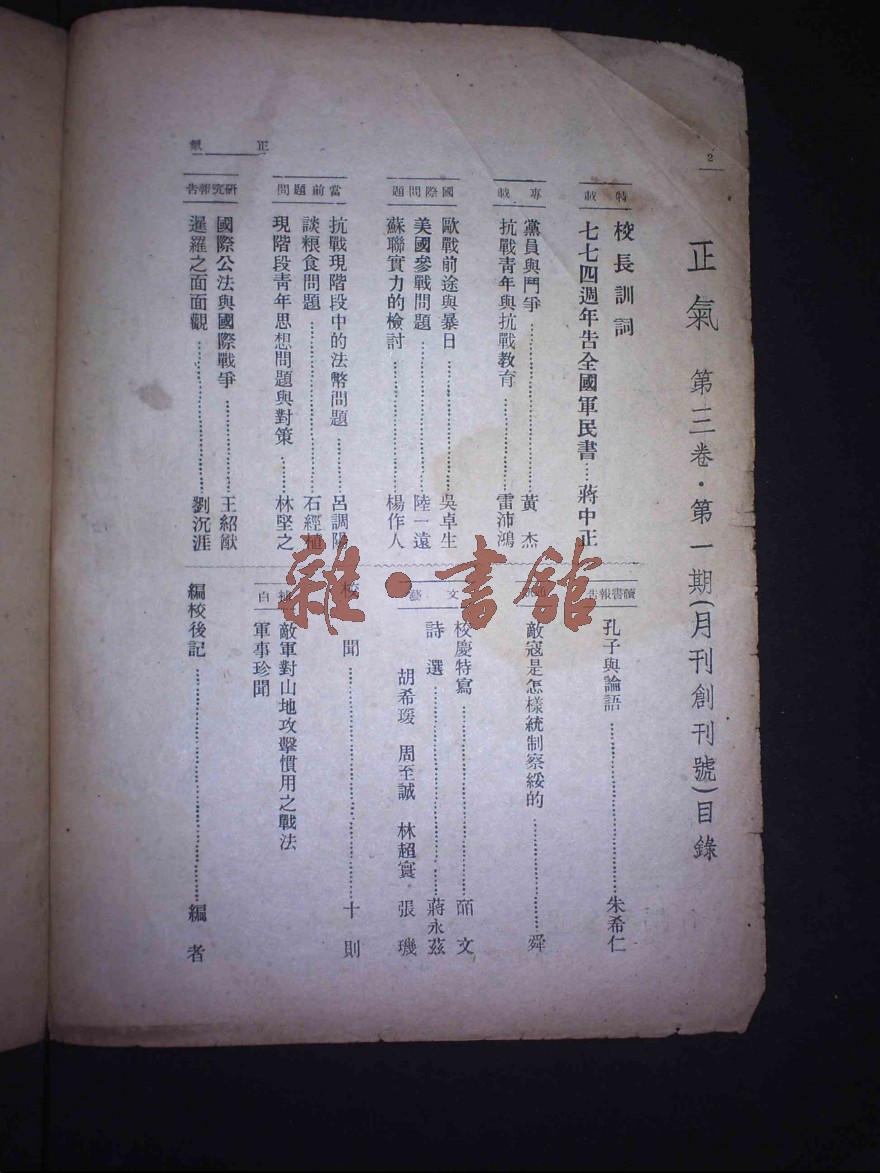 2
正氣
正氣　第三卷·第一期(月刊創刊號)目錄
特載
校長訓詞
七七四週年告全國軍民書…蔣中正
專載
黨員與鬥爭…黃杰
抗戰青年與抗戰教育…雷沛鴻
國際問題
歐戰前途與暴日…吳卓生
美國參戰問題…陸一遠
蘇聯實力的檢討…楊作人
當前問題
抗戰現階段中的法幣問題…呂調陽
談粮食問題…石經植
現階段青年思想問題與對策…林堅之
研究報告
國際公法與國際戰爭…王紹猷
暹羅之面面觀…劉沉涯
讀書報告
孔子與論語…朱希仁
敵寇是怎樣統制察綏的…舜
文藝
校慶特寫…皕文
詩選…蔣永茲
胡希瑗　周至誠　林超寰　張璣
校聞…十則
補白
敵軍對山地攻擊慣用之戰法
軍事珍聞
編校後記…編者
雜·書館